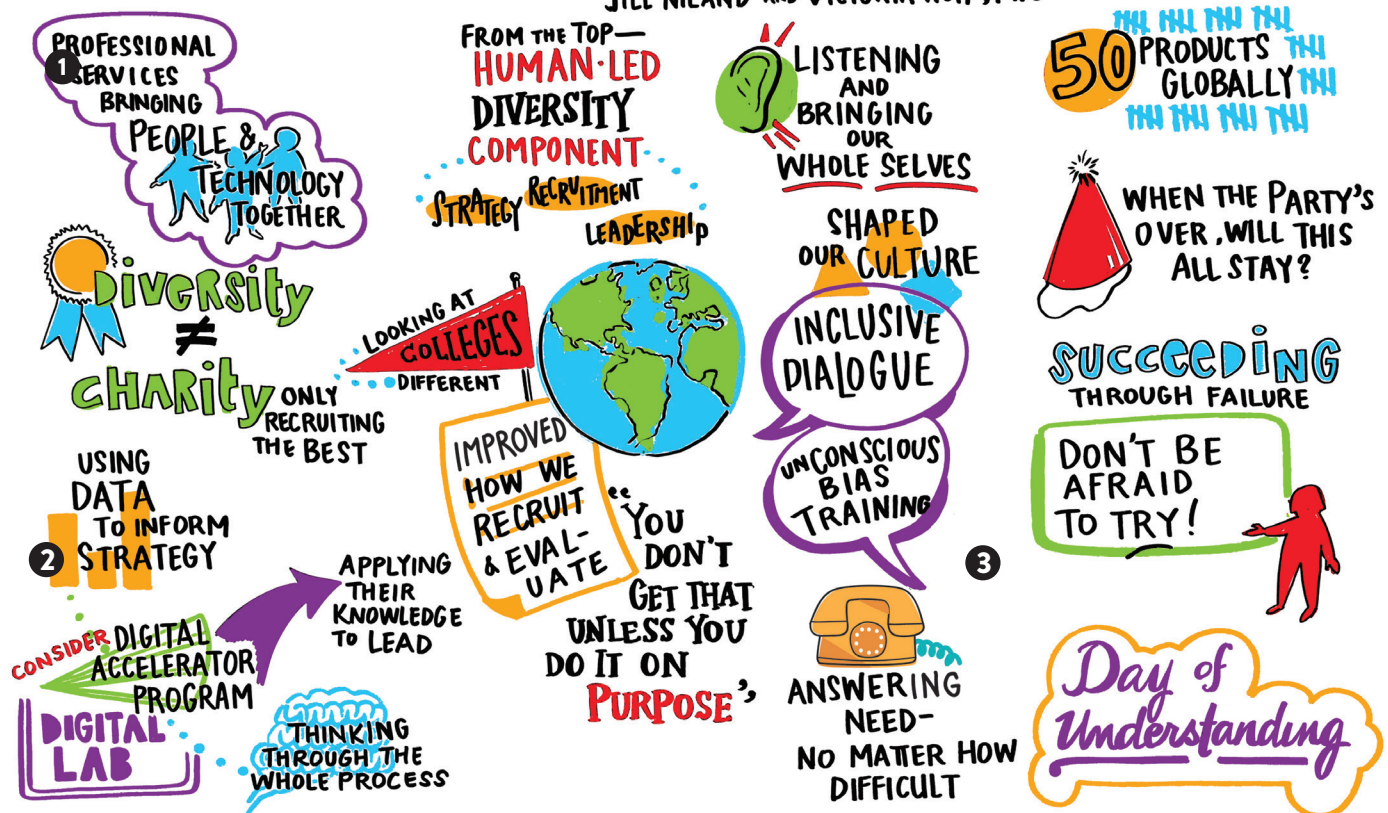 JILL NILAND AND VICTORIA
1
PROFESSIONAL
SERVICES
BRINGING
PEOPLE &
TECHNOLOGY
TOGETHER
DIVERSITY
≠
CHARITY
ONLY
RECRUITING
THE BEST
USING
DATA
TO INFORM
STRATEGY
2
CONSIDER DIGITAL
ACCELERATOR
PROGRAM
DIGITAL
LAB
APPLYING
THEIR
KNOWLEDGE
TO LEAD
THINKING
THROUGH THE
WHOLE PROCESS
FROM THE TOP—
HUMAN·LED
DIVERSITY
COMPONENT
STRATEGY
RECRUITMENT
LEADERSHIP
LOOKING AT
COLLEGES
DIFFERENT
IMPROVED
HOW WE
RECRUIT
& EVAL-
UATE
“YOU
DON'T
GET THAT
UNLESS YOU
DO IT ON
PURPOSE”
LISTENING
AND
BRINGING
OUR
WHOLE SELVES
SHAPED
OUR CULTURE
INCLUSIVE
DIALOGUE
UNCONSCIOUS
BIAS
TRAINING
3
ANSWERING
NEED-
NO MATTER HOW
DIFFICULT
50 PRODUCTS
GLOBALLY
WHEN THE PARTY'S
OVER, WILL THIS
ALL STAY?
SUCCEEDING
THROUGH FAILURE
DON'T BE
AFRAID
TO TRY!
Day of
Understanding